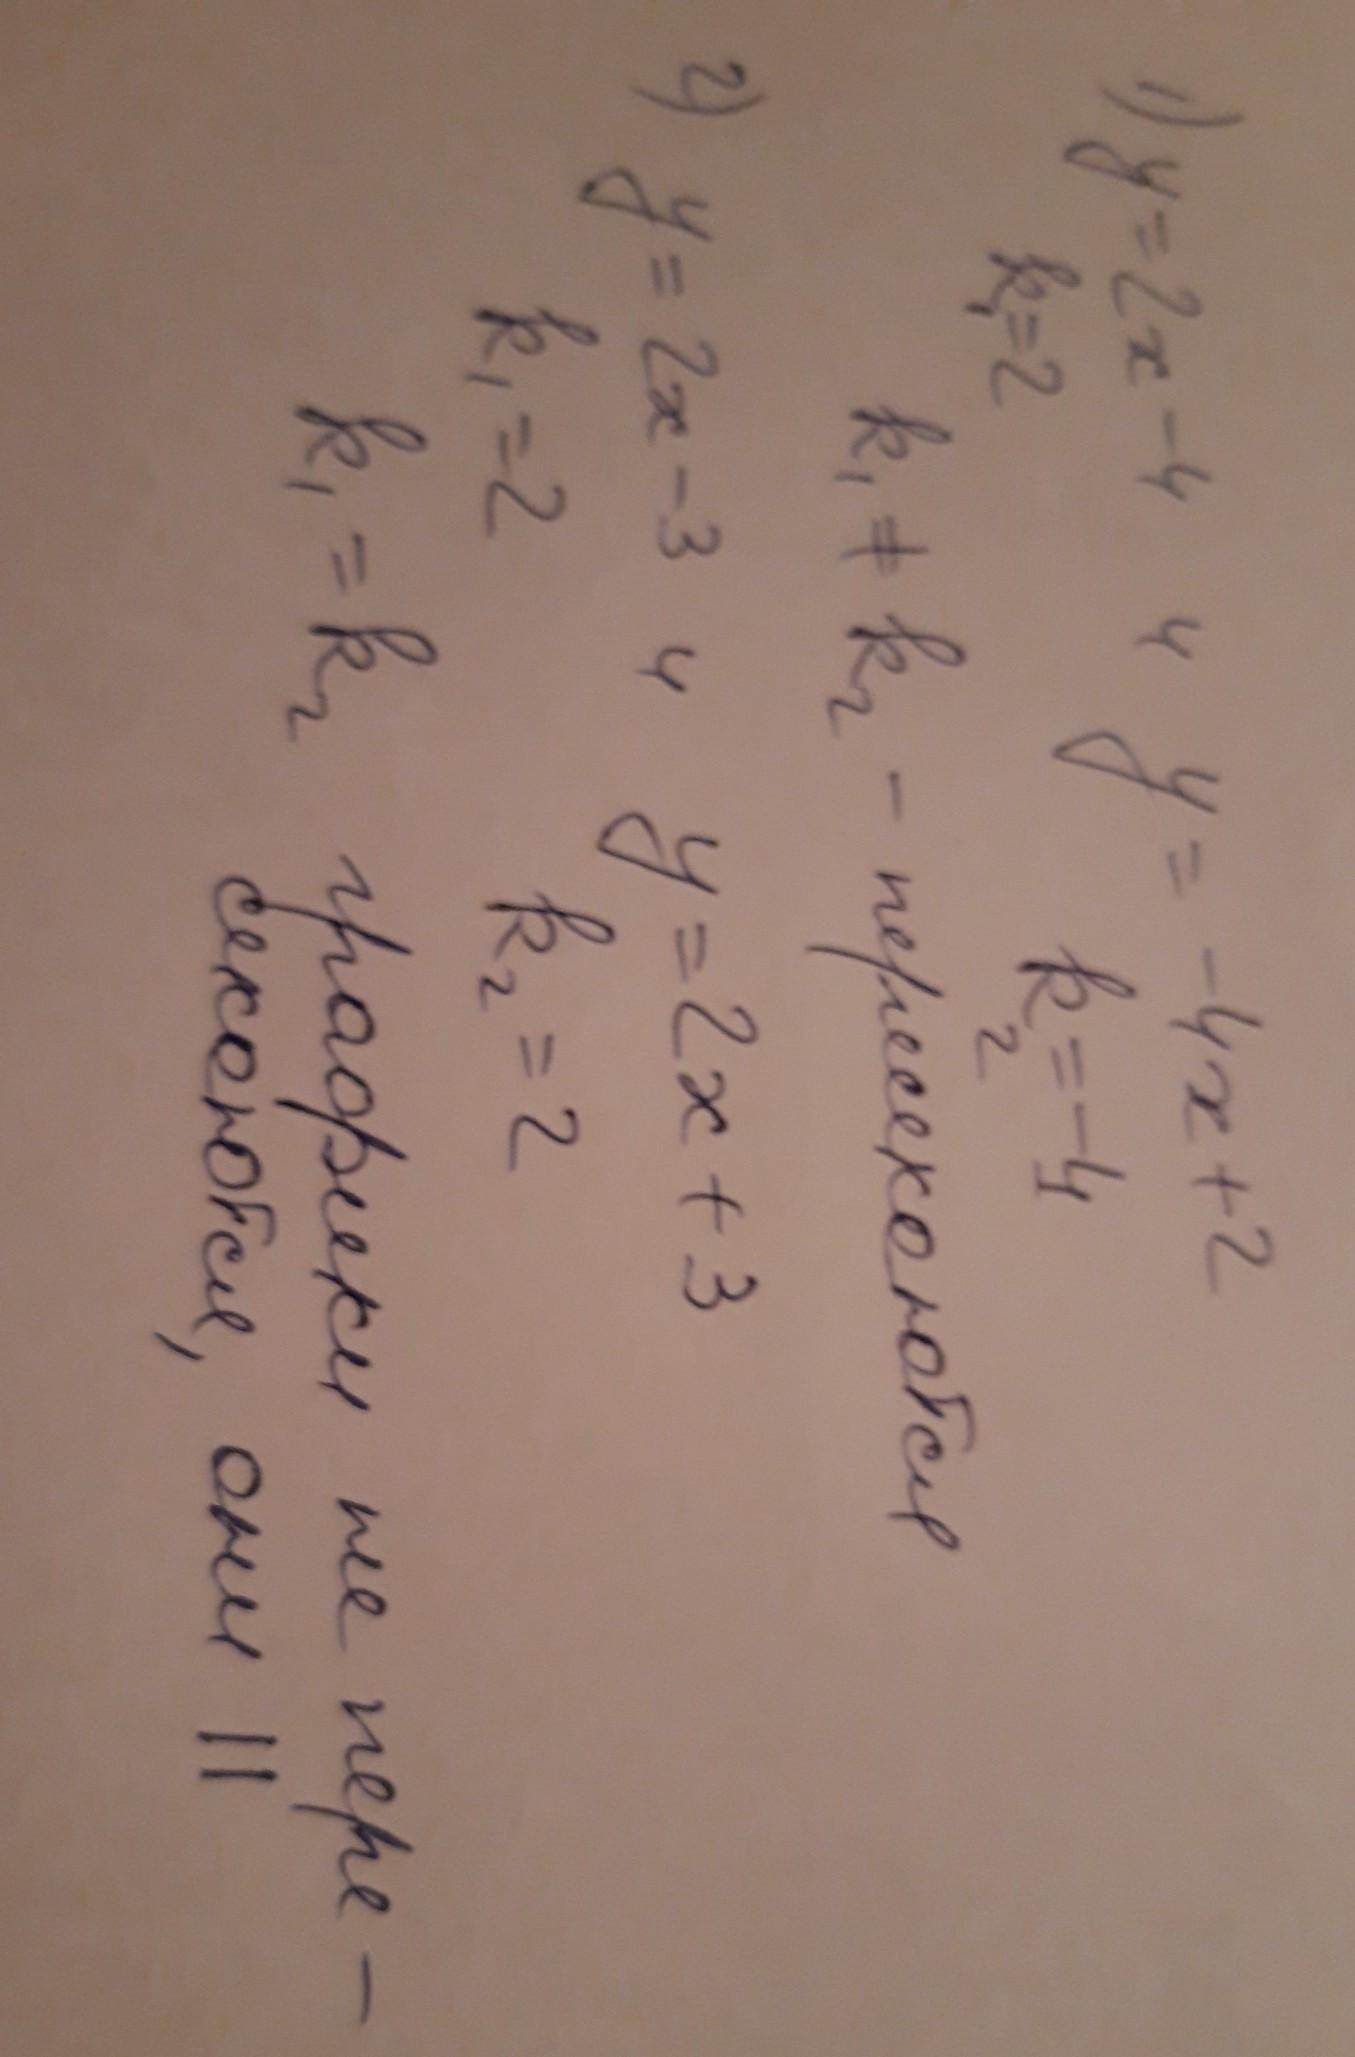 1) y = 2x - 4 и y = -4x + 2
k₁ = 2 k₂ = -4
k₁ ≠ k₂ - пересекаются
2) y = 2x - 3 и y = 2x + 3
k₁ = 2 k₂ = 2
k₁ = k₂ графики не пере-
секаются, они ||